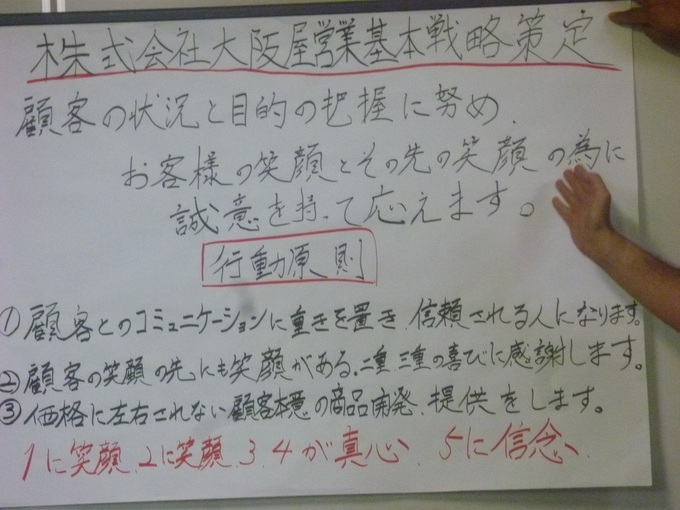 株式会社大阪屋営業基本戦略策定
顧客の状況と目的の把握に努め、
お客様の笑顔とその先の笑顔の為に
誠意を持って応えます。
行動原則
①顧客とのコミュニケーションに重きを置き、信頼される人になります。
②顧客の笑顔の先にも笑顔がある、二重三重の喜びに感謝します。
③価格に左右されない顧客本意の商品開発、提供をします。
1に笑顔、2に笑顔、3、4が真心、5に信念、